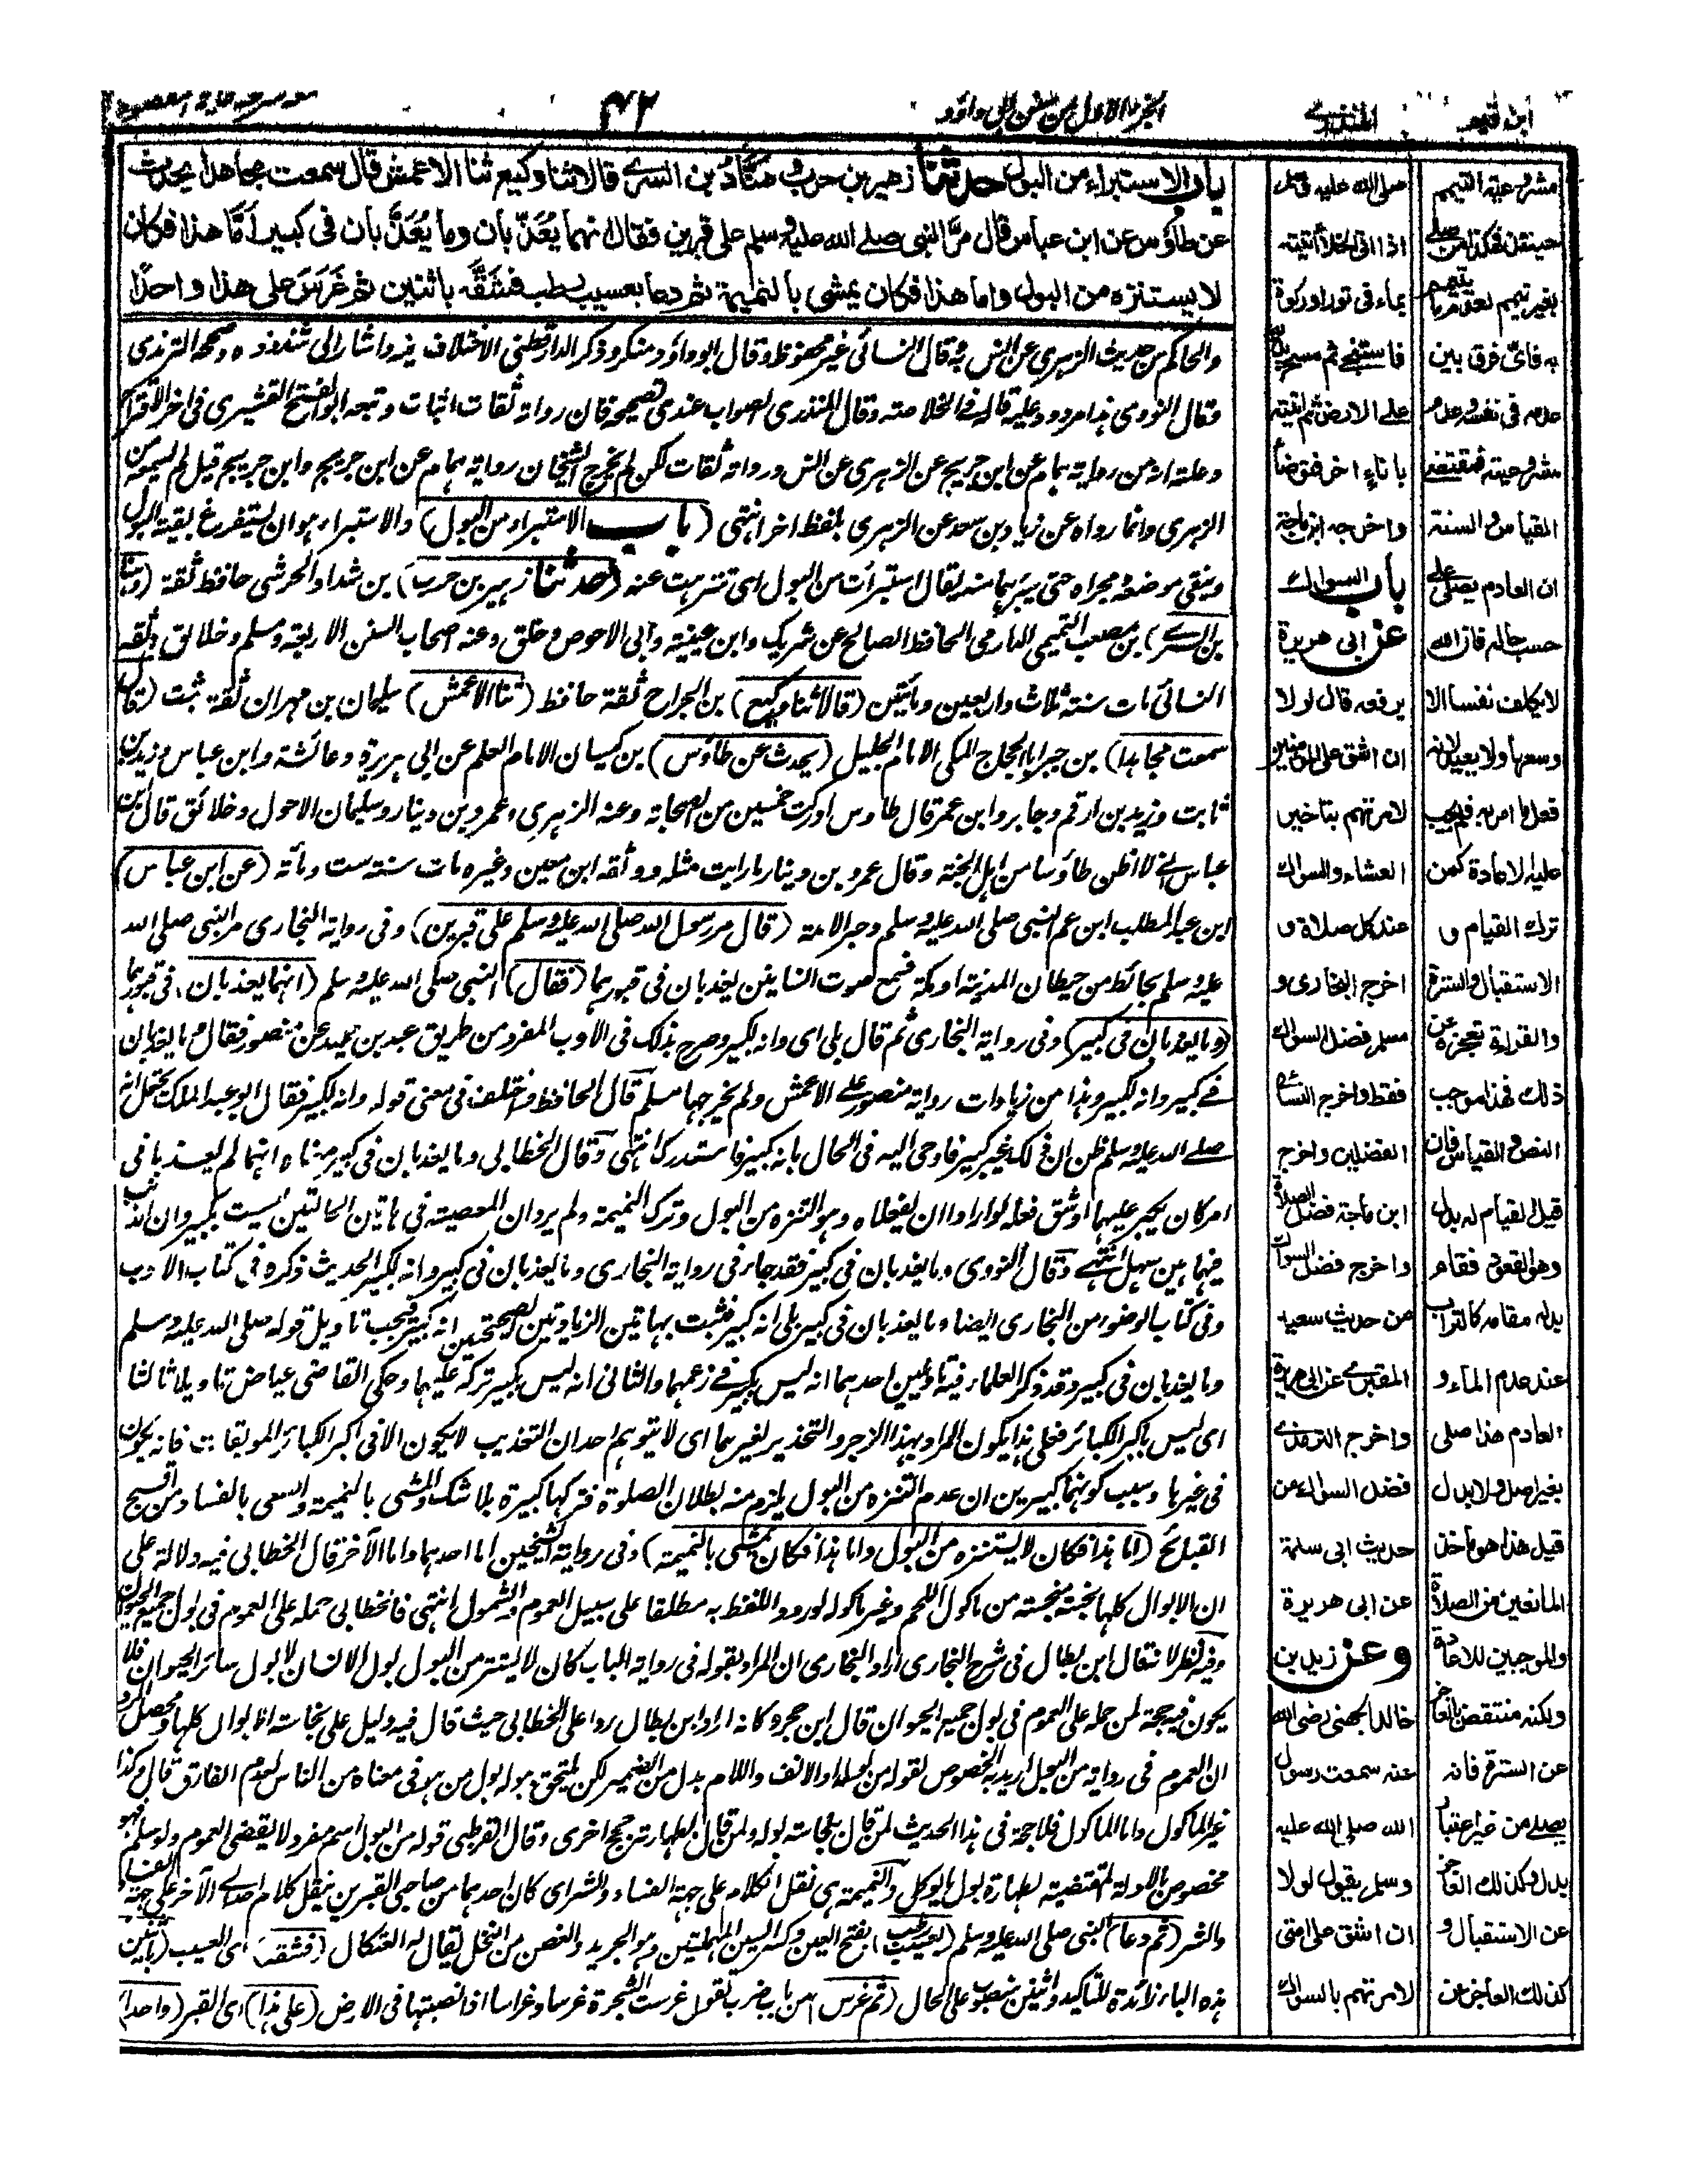 ابن قيم
المنذري
الجزء الاول من سنن ابي داؤد
٤٢
باب الاستبراء من البول حدثنا زهير بن حرب وهنّاد بن السري قالا ثنا وكيع ثنا الاعمش قال سمعت مجاهدا يحدث
عن طاؤس عن ابن عباس قال مرّ النبي صلى الله عليه وسلم على قبرين فقال انهما يُعَذَّبان وما يُعَذَّبان فى كبير أمّا هذا فكان
لا يستنزه من البول واما هذا فكان يمشى بالنميمة ثم دعا بعسيب رطب فشَقَّه باثنين ثم غَرَسَ على هذا واحدًا
والحاكم من حديث الزهرى عن انس به قال النسائى غير محفوظ وقال ابو داؤد منكر وذكر الدارقطنى الاختلاف فيه واشار الى شذوذه وصححه الترمذى
وقال النووى هذا مردود عليه قاله فى الخلاصة وقال المنذرى الصواب عندى تصحيحه فان رواته ثقات اثبات وتبعه ابو الفتح القشيرى فى اخر الاقتراح
وعلته انه من رواية همام عن ابن جريج عن الزهرى عن انس ورواته ثقات لكن لم يخرج الشيخان رواية همام عن ابن جريج وابن جريج قيل لم يسمعه من
الزهرى وانما رواه عن زياد بن سعد عن الزهرى بلفظ اخر انتهى (باب الاستبراء من البول) والاستبراء هو ان يستفرغ بقية البول
وينقى موضعه ومجراه حتى يبرئهما منه يقال استبرأت من البول اى تنزهت عنه (حدثنا زهير بن حرب) بن شداد الحرشى حافظ ثقة (وهناد
بن السرى) بن مصعب التميمى الدارمى الحافظ الصالح عن شريك وابن عيينة وابى الاحوص وخلق وعنه اصحاب السنن الاربعة ومسلم وخلائق وثقه
النسائى مات سنة ثلاث واربعين ومأتين (قالا ثنا وكيع) بن الجراح ثقة حافظ (ثنا الاعمش) سليمان بن مهران ثقة ثبت (قال
سمعت مجاهدا) بن جبر ابا الحجاج المكى الامام الجليل (يحدث عن طاؤس) بن كيسان الامام العلم عن ابى هريرة وعائشة وابن عباس وزيد بن
ثابت وزيد بن ارقم وجابر وابن عمر قال طاوس ادركت خمسين من الصحابة وعنه الزهرى وعمرو بن دينار وسليمان الاحول وخلائق قال ابن
عباس انى لاظن طاؤسا من اهل الجنة وقال عمرو بن دينار ما رايت مثله ووثقه ابن معين وغيره مات سنة ست ومأة (عن ابن عباس)
ابن عبد المطلب ابن عم النبى صلى الله عليه وسلم وحبر الامة (قال مر رسول الله صلى الله عليه وسلم على قبرين) وفى رواية البخارى مر النبى صلى الله
عليه وسلم بحائط من حيطان المدينة او مكة فسمع صوت انسانين يعذبان فى قبورهما (فقال) النبى صلى الله عليه وسلم (انهما يعذبان) فى قبورهما
(وما يعذبان فى كبير) وفى رواية البخارى ثم قال بلى اى وانه لكبير وصرح بذلك فى الادب المفرد من طريق عبد بن حميد عن منصور فقال وما يعذبان
فى كبير وانه لكبير وهذا من زيادات رواية منصور على الاعمش ولم يخرجها مسلم قال الحافظ واختلف فى معنى قوله وانه لكبير فقال ابو عبد الملك يحتمل انه
صلى الله عليه وسلم ظن ان ذلك غير كبير فاوحى اليه فى الحال بانه كبير فاستدرك انتهى وقال الخطابى وما يعذبان فى كبير معناه انهما لم يعذبا فى
امر كان يكبر عليهما او شق فعله لو ارادا ان يفعلاه وهو التنزه من البول وترك النميمة ولم يرد ان المعصية فى هاتين الحالتين ليست بكبير وان الذنب
فيهما هين سهل انتهى وقال النووى وما يعذبان فى كبير فقد جاء فى رواية البخارى وما يعذبان فى كبير وانه لكبير الحديث ذكره فى كتاب الادب
وفى كتاب الوضوء من البخارى ايضا وما يعذبان فى كبير بلى انه كبير فثبت بهاتين الزيادتين الصحيحتين انه كبير فيجب تاويل قوله صلى الله عليه وسلم
وما يعذبان فى كبير وقد ذكر العلماء فيه تاويلين احدهما انه ليس بكبير فى زعمهما والثانى انه ليس بكبير تركه عليهما وحكى القاضى عياض تاويلا ثالثا
اى ليس باكبر الكبائر فعلى هذا يكون المراد بهذا الزجر والتحذير لغيرهما اى لا يتوهم احد ان التعذيب لا يكون الا فى اكبر الكبائر الموبقات فانه يكون
فى غيرها وسبب كونهما كبيرين ان عدم التنزه من البول يلزم منه بطلان الصلوة فتركها كبيرة بلا شك والمشى بالنميمة والسعى بالفساد من اقبح
القبائح (اما هذا فكان لا يستنزه من البول واما هذا فكان يمشى بالنميمة) وفى رواية الشيخين اما احدهما واما الآخر قال الخطابى فيه دلالة على
ان الابوال كلها نجسة منجسة من ماكول اللحم وغير ماكوله لورود اللفظ به مطلقا على سبيل العموم والشمول انتهى فالخطابى حمله على العموم فى بول جميع الحيوان
وفيه نظر لان قال ابن بطال فى شرح البخارى اراد البخارى ان المراد بقوله فى رواية الباب كان لا يستتر من البول بول الانسان لا بول سائر الحيوان فلا
يكون فيه حجة لمن حمله على العموم فى بول جميع الحيوان قال ابن حجر وكانه اراد ابن بطال ردا على الخطابى حيث قال فيه دليل على نجاسة الابوال كلها ومحصل الرد
ان العموم فى رواية من البول اريد به الخصوص لقوله من بوله او الالف واللام بدل من الضمير لكن يلتحق ببوله بول من هو فى معناه من الناس لعدم الفارق قال وكذا
غير الماكول واما الماكول فلا حجة فى هذا الحديث لمن قال بنجاسة بوله ولمن قال بطهارته حجج اخرى وقال القرطبى قوله من البول اسم مفرد لا يقتضى العموم ولو سلم فهو
مخصوص بالادلة المقتضية لطهارة بول ما يوكل والنميمة هى نقل الكلام على جهة الفساد والشر اى كان احدهما من صاحبى القبرين ينقل كلام احد الى الآخر على جهة الفساد
والشر (ثم دعا) النبى صلى الله عليه وسلم (بعسيب رطب) بفتح العين وكسر السين المهملتين وهو الجريد والغصن من النخل يقال له العثكال (فشقه) اى العسيب (باثنين)
هذه الباء زائدة للتاكيد واثنين منصوب على الحال (ثم غرس) من باب ضرب تقول غرست الشجرة غرسا وغراسا اذا نصبتها فى الارض (على هذا) اى القبر (واحدا)
صلى الله عليه وسلم
اذا اتى الخلاء أتيته
بماء فى تور او ركوة
فاستنجى ثم مسح يده
على الارض ثم اتيته
باناء اخر فتوضأ
واخرجه ابن ماجة
باب السواك
عن ابى هريرة
يرفعه قال لولا
ان اشق على المؤمنين
لامرتهم بتاخير
العشاء والسواك
عند كل صلاة و
اخرج البخارى و
مسلم فضل السواك
فقط واخرج النسائى
الفضلين واخرج
ابن ماجة فضل الصلاة
واخرج فضل السواك
من حديث سعيد
المقبرى عن ابى هريرة
واخرج الترمذى
فضل السواك من
حديث ابى سلمة
عن ابى هريرة
وعن زيد بن
خالد الجهنى رضى الله
عنه سمعت رسول
الله صلى الله عليه
وسلم يقول لولا
ان اشق على امتى
لامرتهم بالسواك
مشروعية التيمم
حينئذ فكذا من صلى
بغير تيمم لعدم ما يتيمم
به فاى فرق بين
عدمه فى نفسه وعدم
مشروعيته فمقتضى
القياس والسنة
ان العادم يصلى على
حسب حاله فان الله
لا يكلف نفسا الا
وسعها ولا يعيد لانه
فعل ما امر به فلم يجب
عليه الاعادة كمن
ترك القيام و
الاستقبال والسترة
والقراءة لعجزه عن
ذلك فهذا موجب
النص والقياس فان
قيل القيام له بدل
وهو القعود فقام
بدله مقامه كالتراب
عند عدم الماء و
العادم هذا صلى
بغير اصل ولا بدل
قيل هذا هو ماخذ
المانعين من الصلاة
والموجبين للاعادة
ولكنه منتقض بالعاجز
عن السترة فانه
يصلى من غير اعتبار
بدل وكذلك العاجز
عن الاستقبال و
كذلك العاجز عن